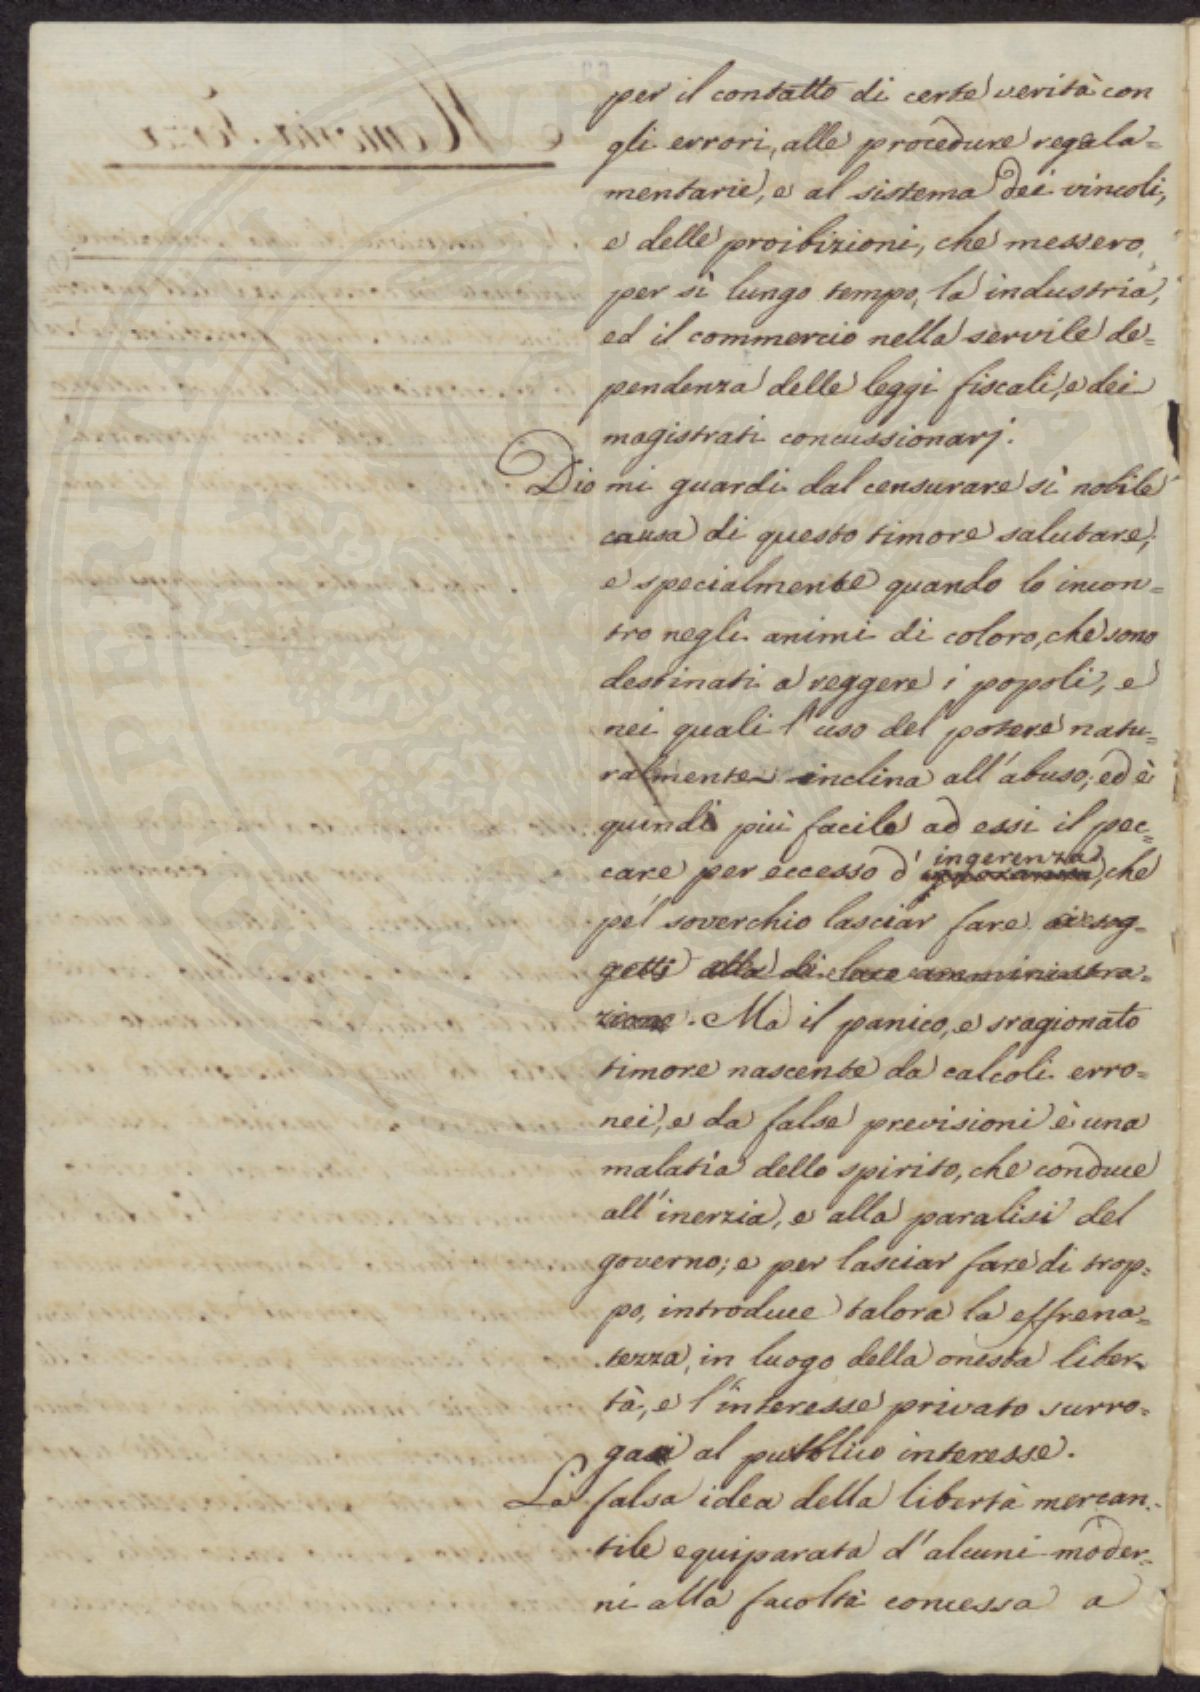 per il contatto di certe verità con
gli errori, alle procedure regola=
mentarie, e al sistema dei vincoli,
e delle proibizioni, che messero,
per sì lungo tempo, la industria,
ed il commercio nella servile de=
pendenza delle leggi fiscali, e dei
magistrati concussionarj.
Dio mi guardi dal censurare sì nobile
causa di questo timore salutare;
e specialmente quando lo incon=
tro negli animi di coloro, che sono
destinati a reggere i popoli, e
nei quali l'uso del potere natu=
ralmente inclina all'abuso; ed è
quindi più facile ad essi il pec=
care per eccesso d' ingerenza, che
pel soverchio lasciar fare ai sog=
getti alla di loro amministra=
zione. Ma il panico, e sragionato
timore nascente da calcoli erro=
nei, e da false previsioni è una
malatia dello spirito, che conduce
all'inerzia, e alla paralisi del
governo; e per lasciar fare di trop=
po, introduce talora la effrena=
tezza, in luogo della onesta liber=
tà, e l'interesse privato surro=
al pubblico interesse.
La falsa idea della libertà mercan=
tile equiparata d'alcuni moder=
ni alla facoltà concessa a